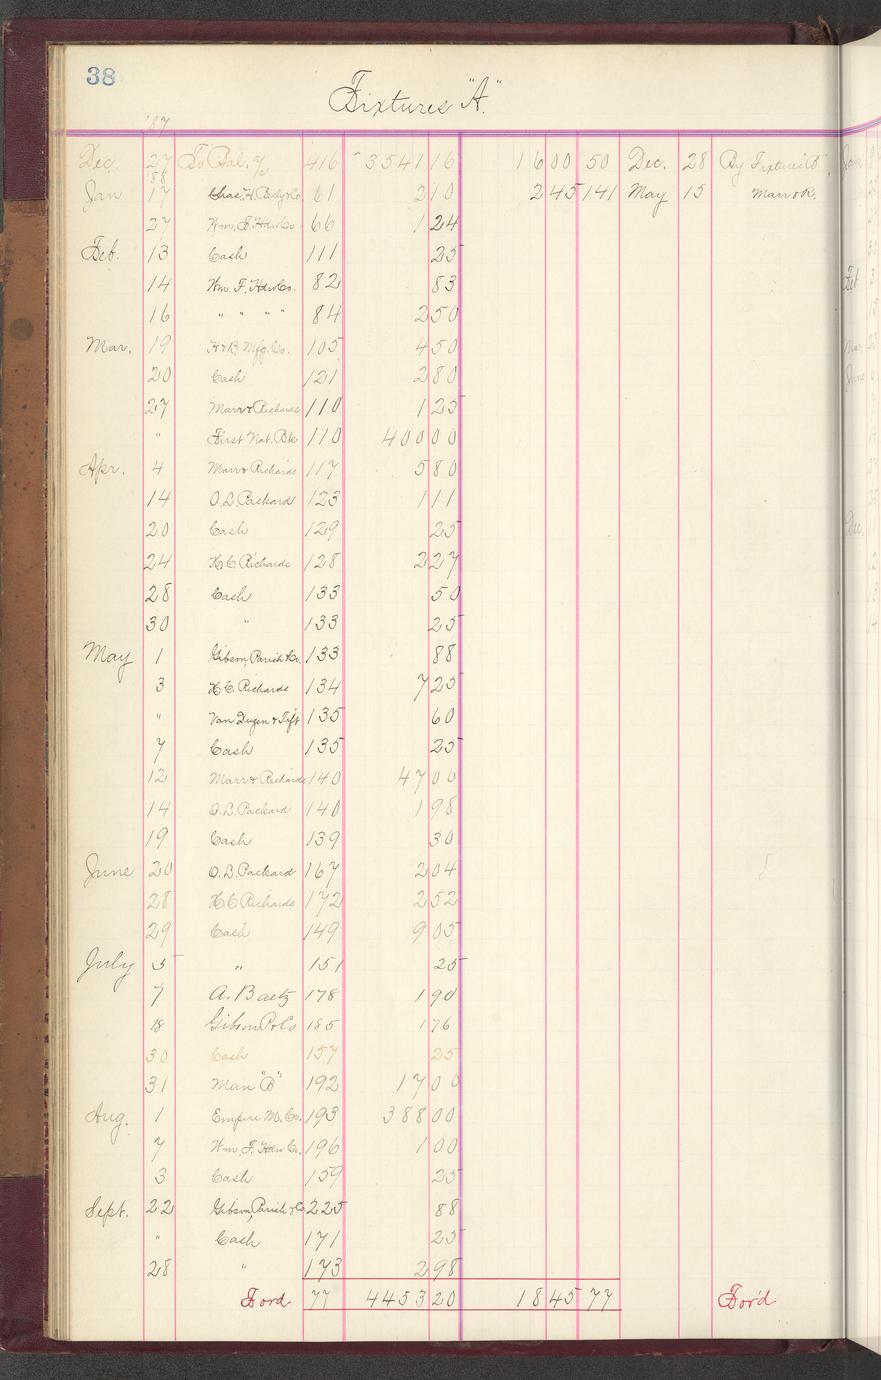 38
Fixtures "A"
'87
Dec. 27 To Bal. a/c 416 3541 16 1600 50 Dec. 28 By Fixtures "B"
'88
Jan 17 Chas. H. Besly & Co. 61 2 10 245 141 May 15 Marr & R.
27 Wm. F. Hdw Co. 66 1 24
Feb. 13 Cash 111 25
14 Wm. F. Hdw Co. 82 83
16 " " " " 84 2 50
Mar. 19 H & B Mfg. Co. 105 4 50
20 Cash 121 2 80
27 Marr & Richards 110 1 25
" First Nat. Bk 110 400 00
Apr. 4 Marr & Richards 117 5 80
14 O. L. Packard 123 1 11
20 Cash 129 25
24 H C Richards 128 2 27
28 Cash 133 50
30 " 133 25
May 1 Gibson, Parish & Co. 133 88
3 H C. Richards 134 7 25
" Van Duzen & Tift 135 60
7 Cash 135 25
12 Marr & Richards 140 47 00
14 O. L. Packard 140 1 98
19 Cash 139 30
June 20 O. L. Packard 167 2 04
28 H C Richards 172 2 52
29 Cash 149 9 05
July 5 " 151 25
7 A. Baetz 178 1 90
18 Gibson P & Co 185 1 76
30 Cash 157 25
31 Man "B" 192 17 00
Aug. 1 Empire M. Co. 193 388 00
7 Wm. F. Hdw Co. 196 1 00
3 Cash 159 25
Sept. 22 Gibson, Parish & Co 225 88
" Cash 171 25
28 " 173 2 98
Ford 77 4453 20 1845 77 For'd